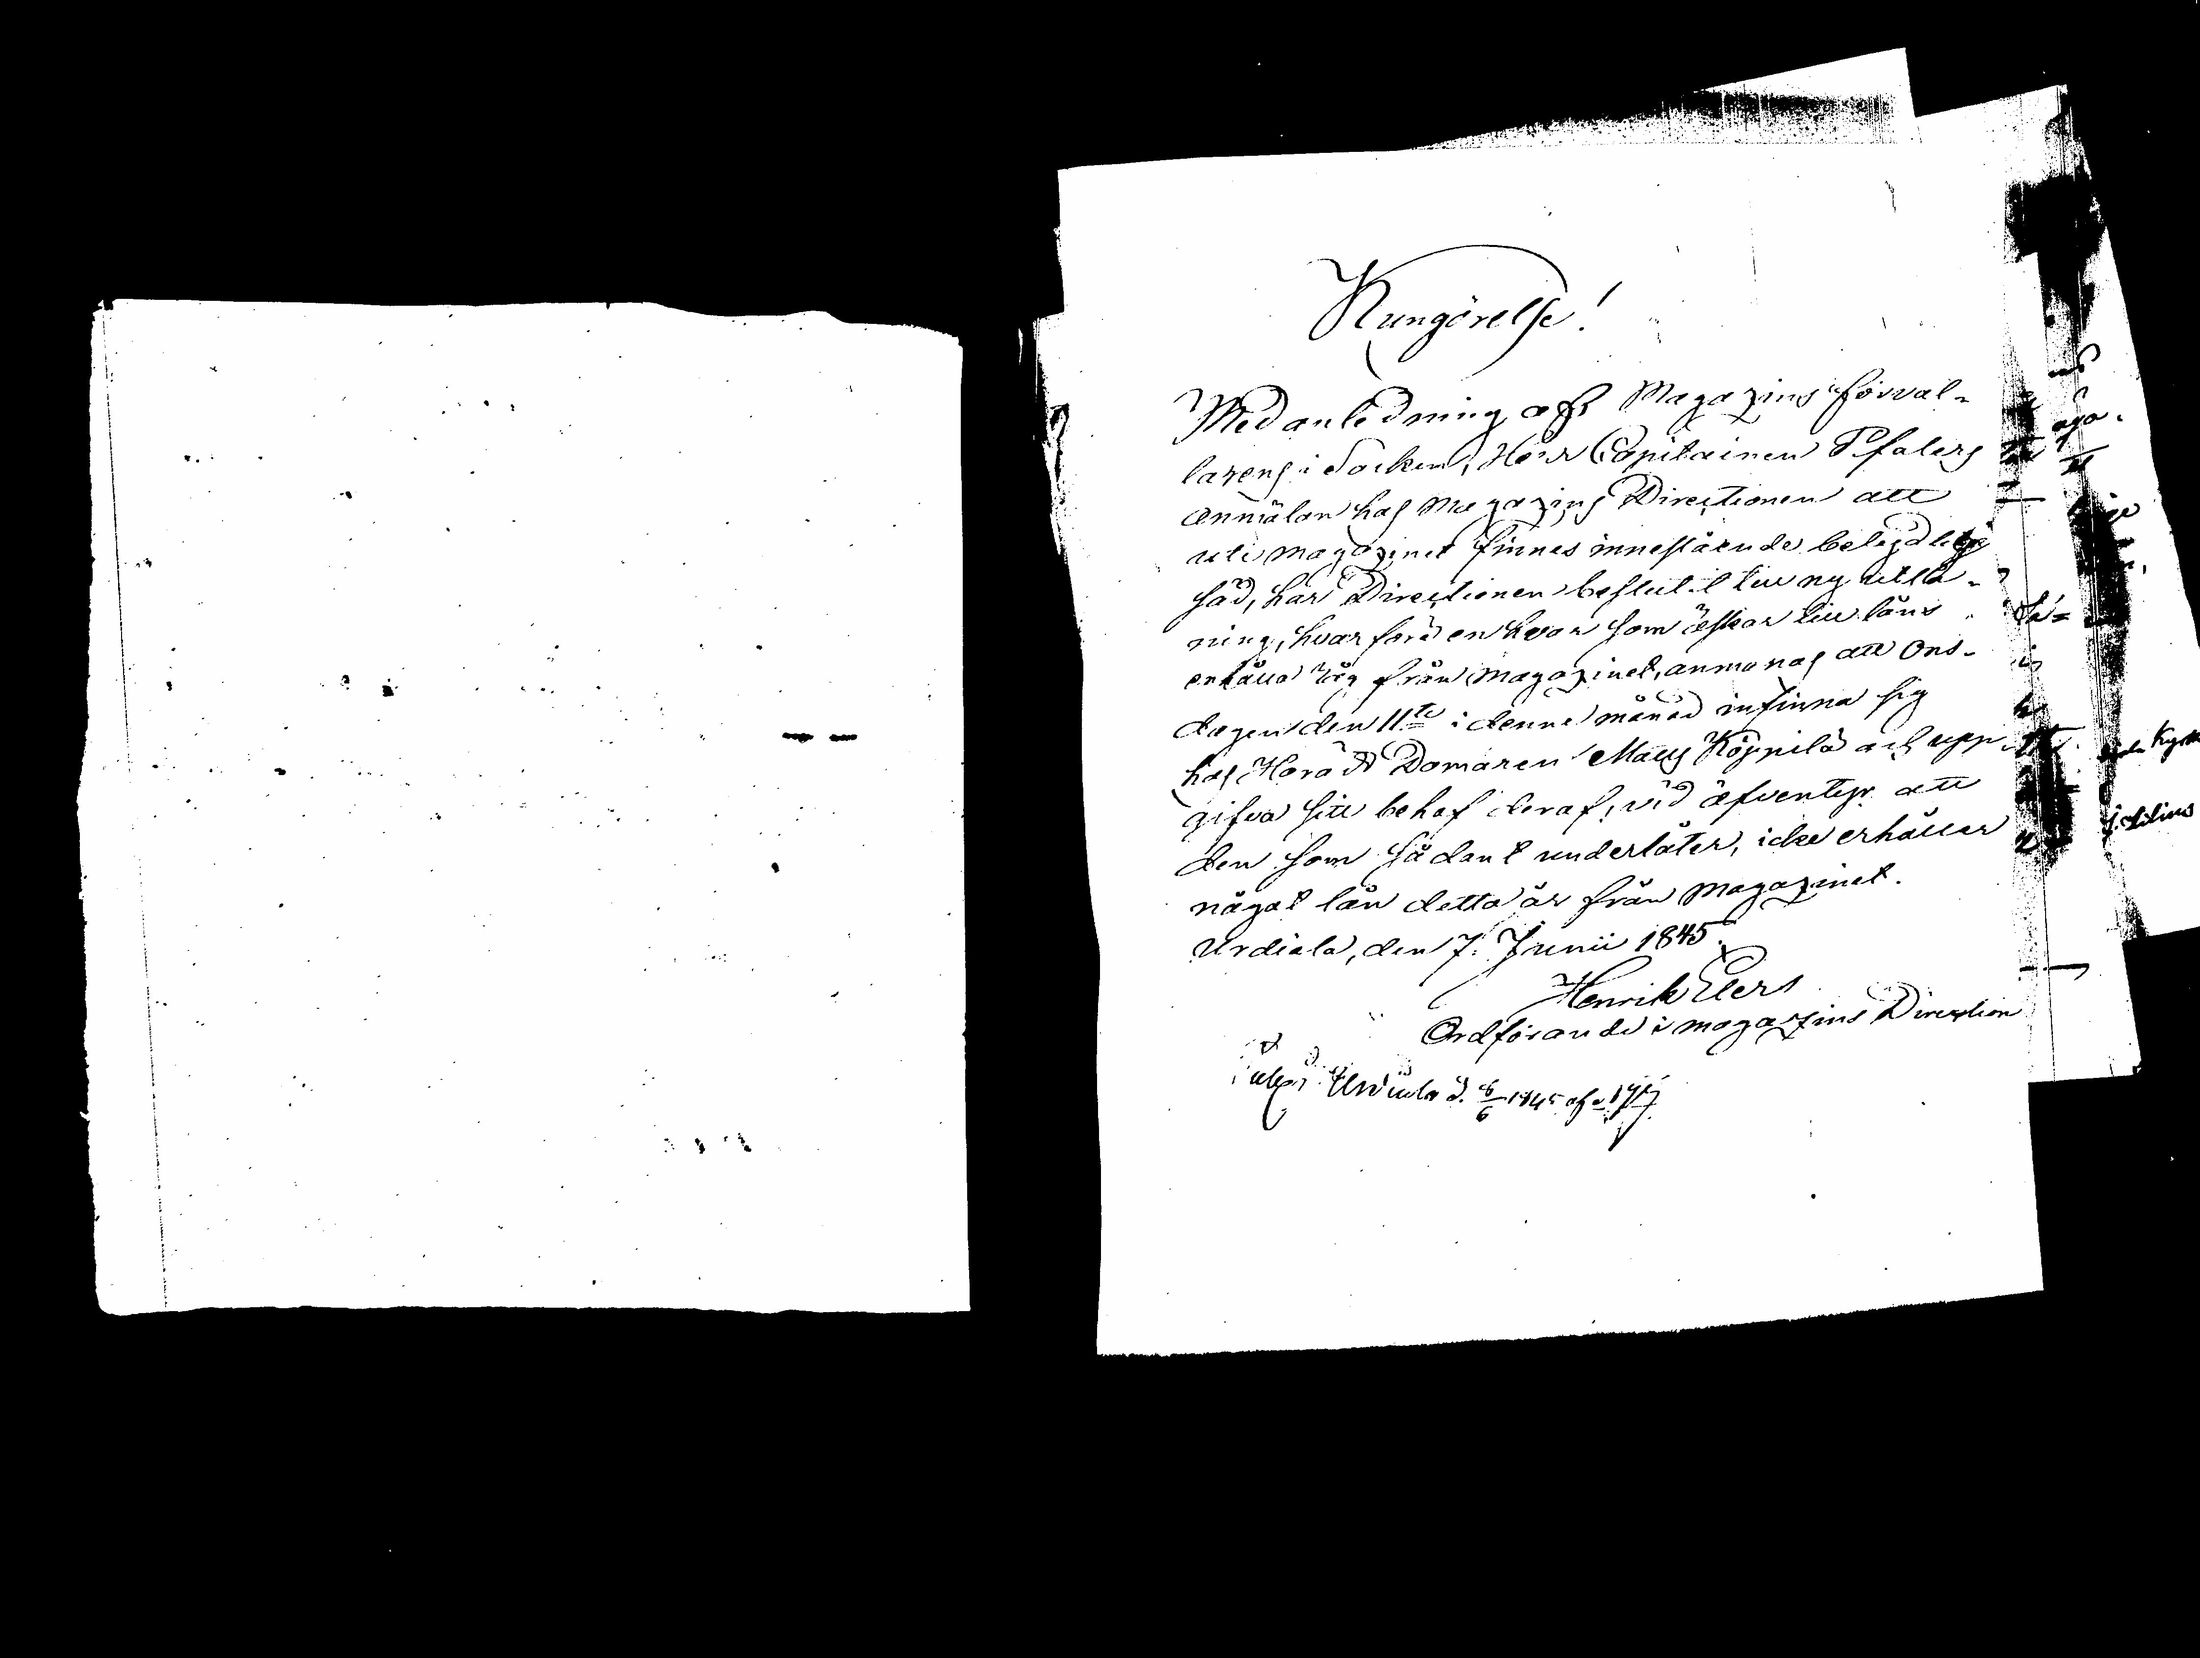 Kungörelse!
Med anledning af Magazins förval-
tarens i Socken, Herr Capitainen Pfalers
anmälan hos Magazins Directionen att
uti magazinet finnes innestående belegad
säd, har Directionen beslutit till ny utlå-
ning, hvarföre en hvar som åstkar till låns
erhålla råg från magazinet, anmanas att Ons-
dagen den 11te i denne månad infinna sig
hos Härads Domaren Matts Köppilä och upp-
gifva sitt behof deraf, vid äfventyr att
den som sådant underlåter, icke erhåller
något lån detta år från Magazinet.
Urdiala, den 7. Junii 1845.
Henrik Elers
Ordförande i magazins Direction
Urdiala d. 8/6 1845 af